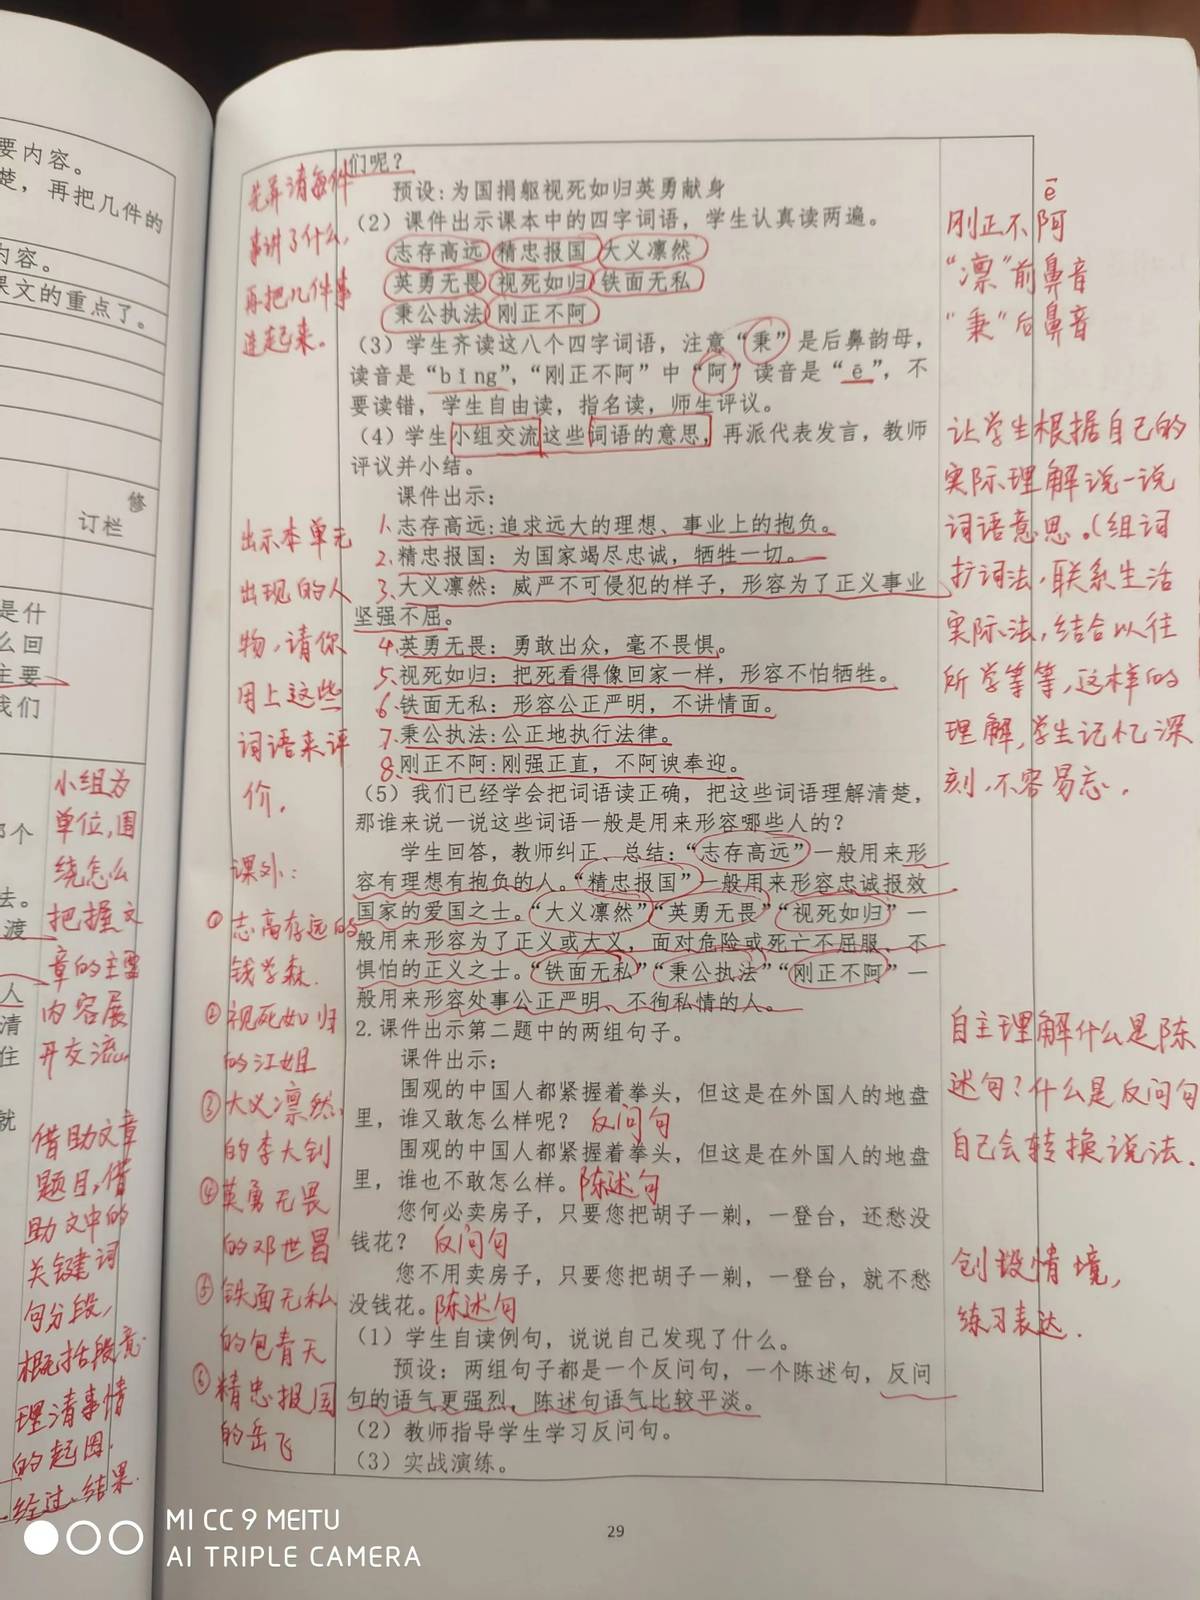 要内容。
楚，再把几件的
内容。
课文的重点了。
修
订栏
是什
么回
主要
我们
那个
去。
渡
人
清
住
就
小组为
单位，围
绕怎么
把握文
章的主要
内容展
开交流。
借助文章
题目，借
助文中的
关键词
句分段，
概括段意，
理清事情
的起因、
经过、结果.
先弄清每件
事讲了什么，
再把几件事
连起来。
出示本单元
出现的人
物，请你
用上这些
词语来评
价，
课外：
①志高存远的
钱学森.
②视死如归
的江姐
③大义凛然
的李大钊
④英勇无畏
的邓世昌
⑤铁面无私
的包青天
⑥精忠报国
的岳飞
们呢？
预设：为国捐躯视死如归英勇献身
（2）课件出示课本中的四字词语，学生认真读两遍。
志存高远 精忠报国 大义凛然
英勇无畏 视死如归 铁面无私
秉公执法 刚正不阿
（3）学生齐读这八个四字词语，注意“秉”是后鼻韵母，
读音是“bǐng”，“刚正不阿”中“阿”读音是“ē”，不
要读错，学生自由读，指名读，师生评议。
（4）学生小组交流这些词语的意思，再派代表发言，教师
评议并小结。
课件出示：
1.志存高远：追求远大的理想、事业上的抱负。
2.精忠报国：为国家竭尽忠诚，牺牲一切。
3.大义凛然：威严不可侵犯的样子，形容为了正义事业
坚强不屈。
4.英勇无畏：勇敢出众，毫不畏惧。
5.视死如归：把死看得像回家一样，形容不怕牺牲。
6.铁面无私：形容公正严明，不讲情面。
7.秉公执法：公正地执行法律。
8.刚正不阿：刚强正直，不阿谀奉迎。
（5）我们已经学会把词语读正确，把这些词语理解清楚，
那谁来说一说这些词语一般是用来形容哪些人的？
学生回答，教师纠正、总结：“志存高远”一般用来形
容有理想有抱负的人。“精忠报国”一般用来形容忠诚报效
国家的爱国之士。“大义凛然”“英勇无畏”“视死如归”一
般用来形容为了正义或大义，面对危险或死亡不屈服、不
惧怕的正义之士。“铁面无私”“秉公执法”“刚正不阿”一
般用来形容处事公正严明、不徇私情的人。
2.课件出示第二题中的两组句子。
课件出示：
围观的中国人都紧握着拳头，但这是在外国人的地盘
里，谁又敢怎么样呢？ 反问句
围观的中国人都紧握着拳头，但这是在外国人的地盘
里，谁也不敢怎么样。陈述句
您何必卖房子，只要您把胡子一剃，一登台，还愁没
钱花？ 反问句
您不用卖房子，只要您把胡子一剃，一登台，就不愁
没钱花。陈述句
（1）学生自读例句，说说自己发现了什么。
预设：两组句子都是一个反问句，一个陈述句，反问
句的语气更强烈，陈述句语气比较平淡。
（2）教师指导学生学习反问句。
（3）实战演练。
ē
刚正不阿
“凛”前鼻音
“秉”后鼻音
让学生根据自己的
实际理解说一说
词语意思。（组词
扩词法，联系生活
实际法，结合以往
所学等等，这样的
理解，学生记忆深
刻，不容易忘，
自主理解什么是陈
述句？什么是反问句
自己会转换说法.
创设情境，
练习表达.
29
MI CC 9 MEITU
AI TRIPLE CAMERA